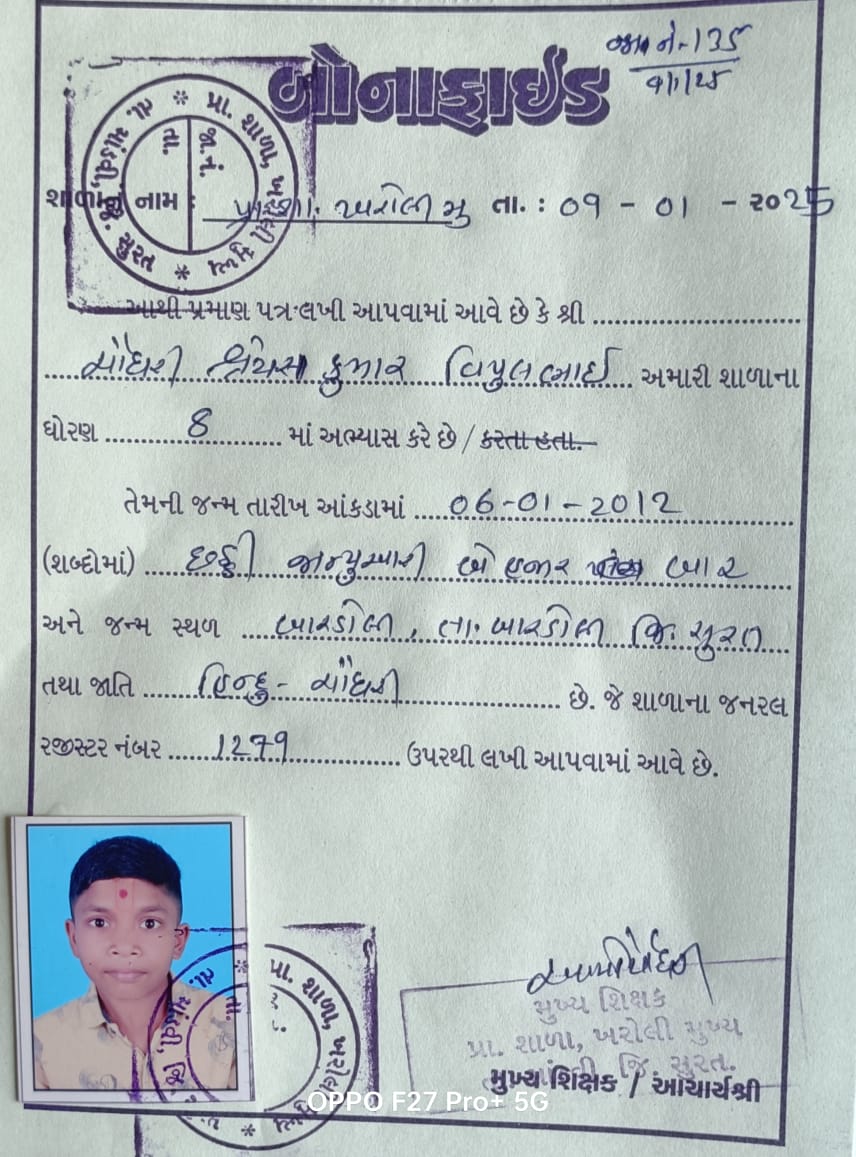 બોનાફાઈડ
જા. નં - 135
9/1/25
પ્રા. શાળા, ખરોલી મુખ્ય * તા. માંડવી, જિ. સુરત *
જા. નં.
તા.
શાળાનું નામ : પ્રા. શા. ખરોલી મુ તા. : 09 - 01 - ૨૦25
આથી પ્રમાણ પત્ર લખી આપવામાં આવે છે કે શ્રી
ચૌધરી શ્રેયસ કુમાર વિપુલભાઈ અમારી શાળાના
ધોરણ 8 માં અભ્યાસ કરે છે / કરતા હતા.
તેમની જન્મ તારીખ આંકડામાં 06-01-2012
(શબ્દોમાં) છઠ્ઠી જાન્યુઆરી બે હજાર બાર
અને જન્મ સ્થળ બારડોલી, તા. બારડોલી જિ. સુરત
તથા જાતિ હિન્દુ - ચૌધરી છે. જે શાળાના જનરલ
રજીસ્ટર નંબર 1279 ઉપરથી લખી આપવામાં આવે છે.
પ્રા. શાળા, ખરોલી મુખ્ય * તા. માંડવી, જિ.
તા.
મુખ્ય શિક્ષક
પ્રા. શાળા, ખરોલી મુખ્ય
જિ. સુરત.
મુખ્ય શિક્ષક / આચાર્યશ્રી
OPPO F27 Pro+ 5G